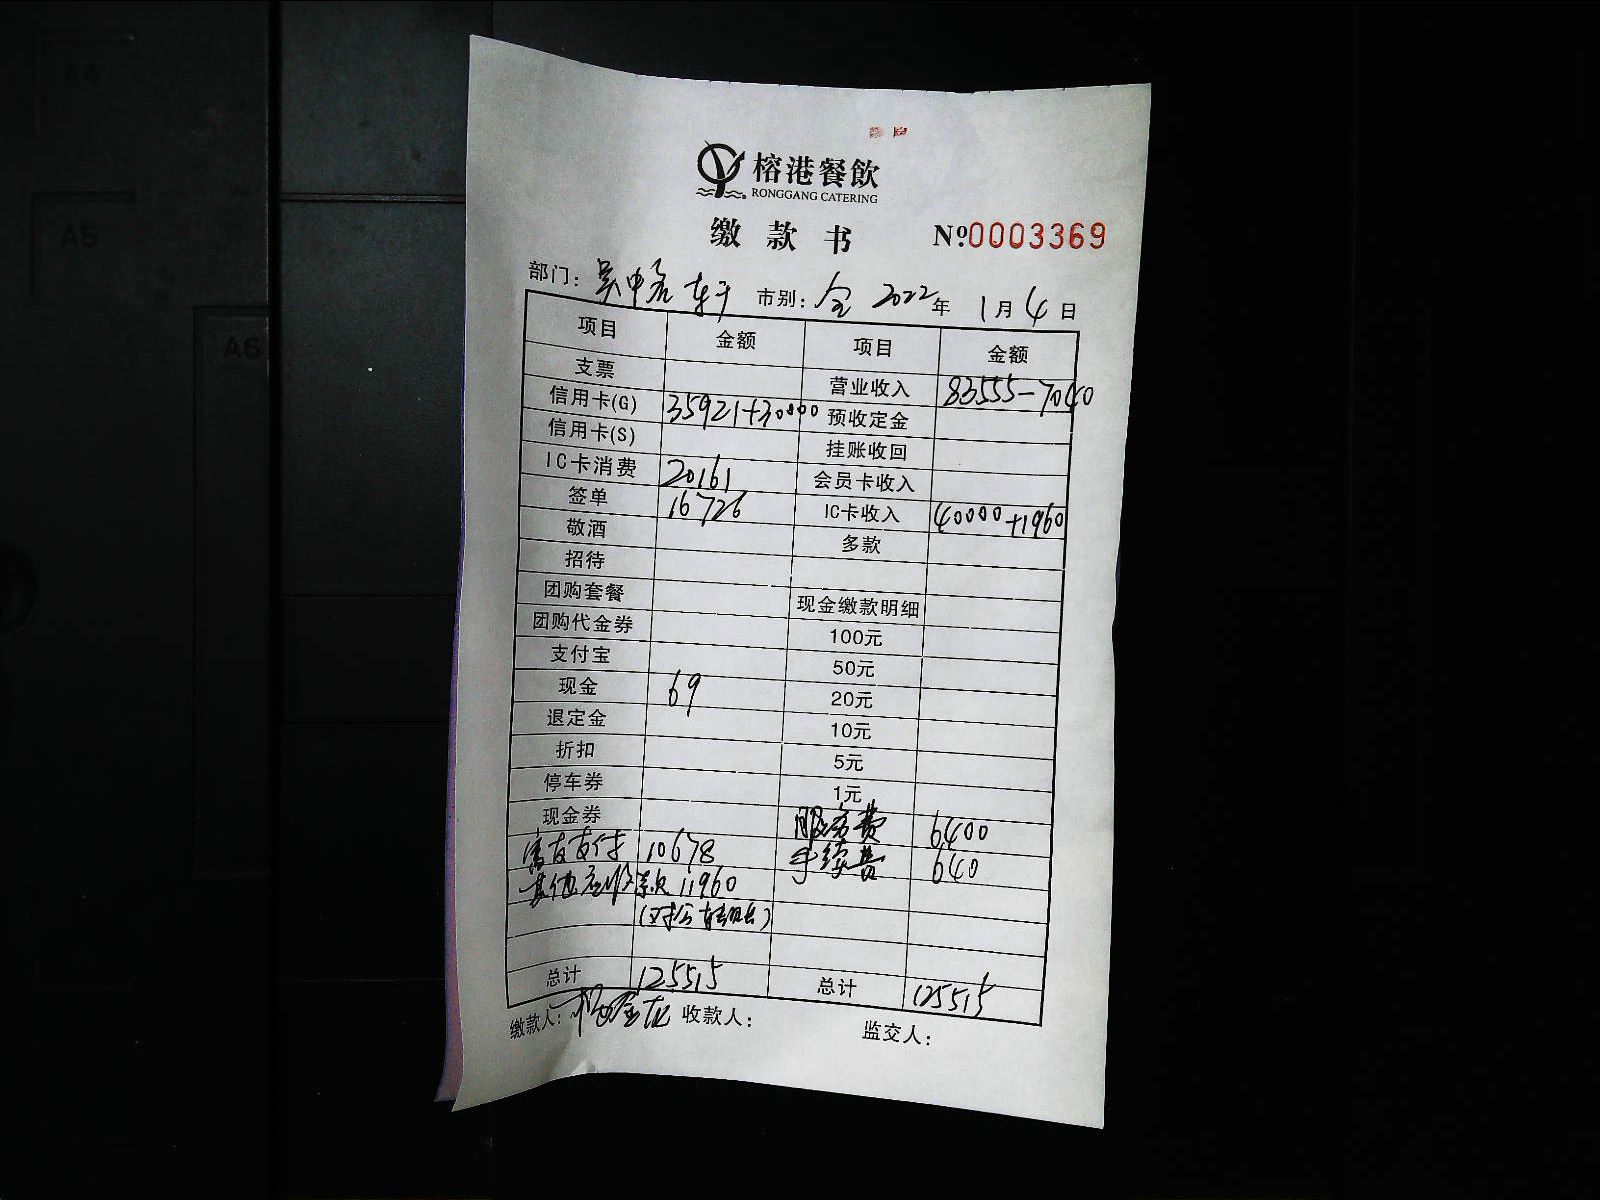 A4
A5
A6
榕港餐飲
RONGGANG CATERING
缴款书 Nº0003369
部门: 市别: 全 2022年 1月4日
项目 金额 项目 金额
支票 营业收入 83555-7040
信用卡(G) 35921+30000 预收定金
信用卡(S) 挂账收回
IC卡消费 20161 会员卡收入
签单 16726 IC卡收入 40000+1960
敬酒 多款
招待
团购套餐 现金缴款明细
团购代金券 100元
支付宝 50元
现金 69 20元
退定金 10元
折扣 5元
停车券 1元
现金券 服务费 6400
富友支付 10678 手续费 640
其他应收款 11960
总计 125515 总计 125515
缴款人: 收款人: 监交人: